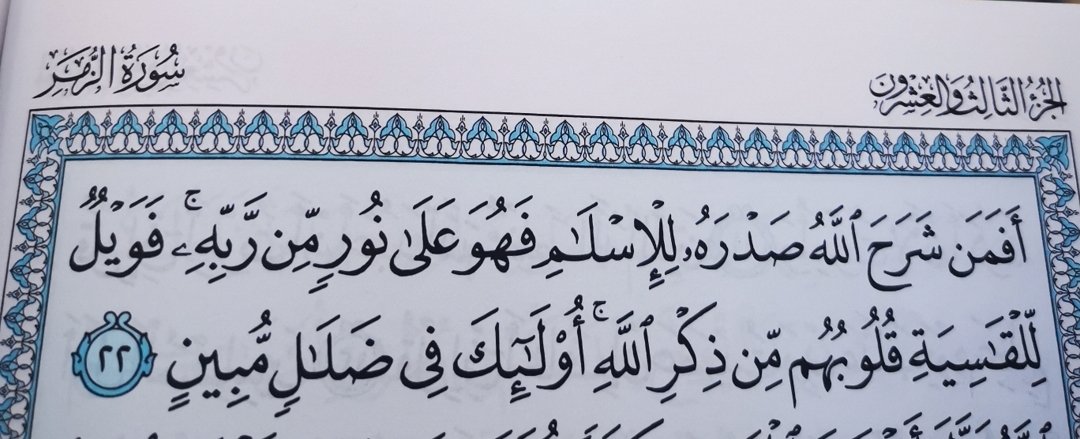 الجزء الثالث والعشرون
سورة الزمر
أَفَمَن شَرَحَ ٱللَّهُ صَدْرَهُۥ لِلْإِسْلَٰمِ فَهُوَ عَلَىٰ نُورٍ مِّن رَّبِّهِۦ ۚ فَوَيْلٌ
لِّلْقَٰسِيَةِ قُلُوبُهُم مِّن ذِكْرِ ٱللَّهِ ۚ أُو۟لَٰٓئِكَ فِى ضَلَٰلٍ مُّبِينٍ ٢٢